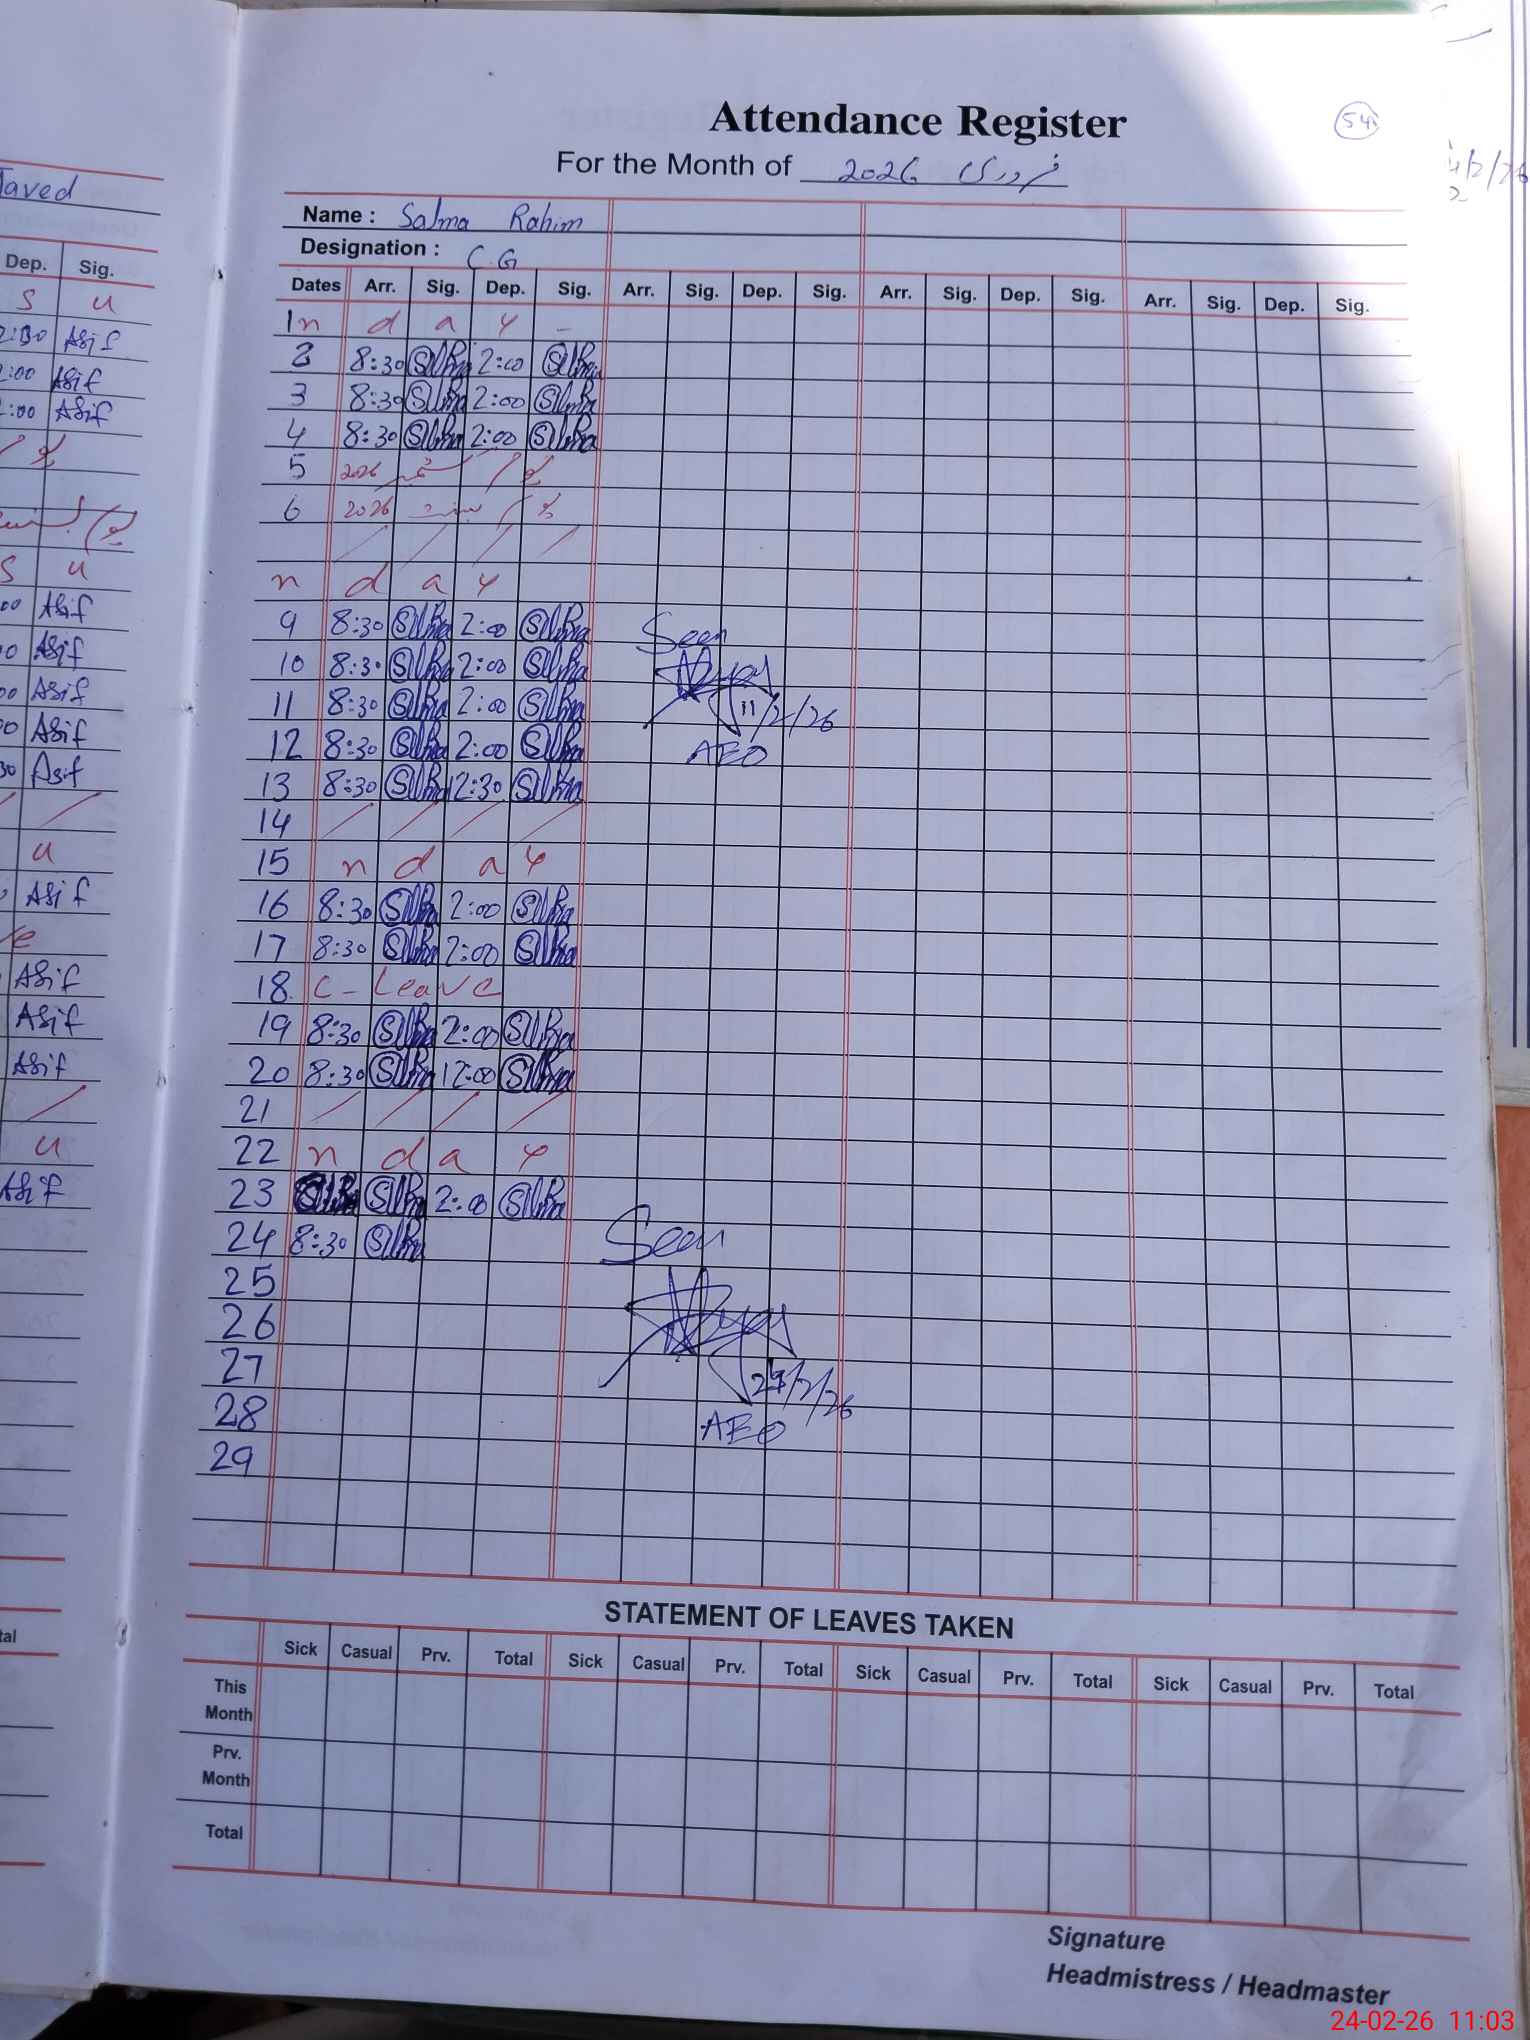 Attendance Register
54
For the Month of فروری 2026
Name : Salma Rahim
Designation : C.G
Dates Arr. Sig. Dep. Sig. Arr. Sig. Dep. Sig. Arr. Sig. Dep. Sig. Arr. Sig. Dep. Sig.
1 n d a y
2 8:30 2:00
3 8:30 2:00
4 8:30 2:00
5 2026
6 2026
n d a y
9 8:30 2:00 Seen
10 8:30 2:00
11 8:30 2:00 11/2/26
12 8:30 2:00 AEO
13 8:30 12:30
14
15 n d a y
16 8:30 2:00
17 8:30 2:00
18 C-Leave
19 8:30 2:00
20 8:30 12:00
21
22 n d a y
23 2:00
24 8:30 Seen
25
26
27 /2/26
28 AEO
29
STATEMENT OF LEAVES TAKEN
Sick Casual Prv. Total Sick Casual Prv. Total Sick Casual Prv. Total Sick Casual Prv. Total
This Month
Prv. Month
Total
Signature
Headmistress / Headmaster
Javed
Dep. Sig.
S u
Asif
2:00 Asif
2:00 Asif
S u
Asif
Asif
Asif
Asif
Asif
u
Asif
Asif
Asif
Asif
u
Asif
24-02-26 11:03